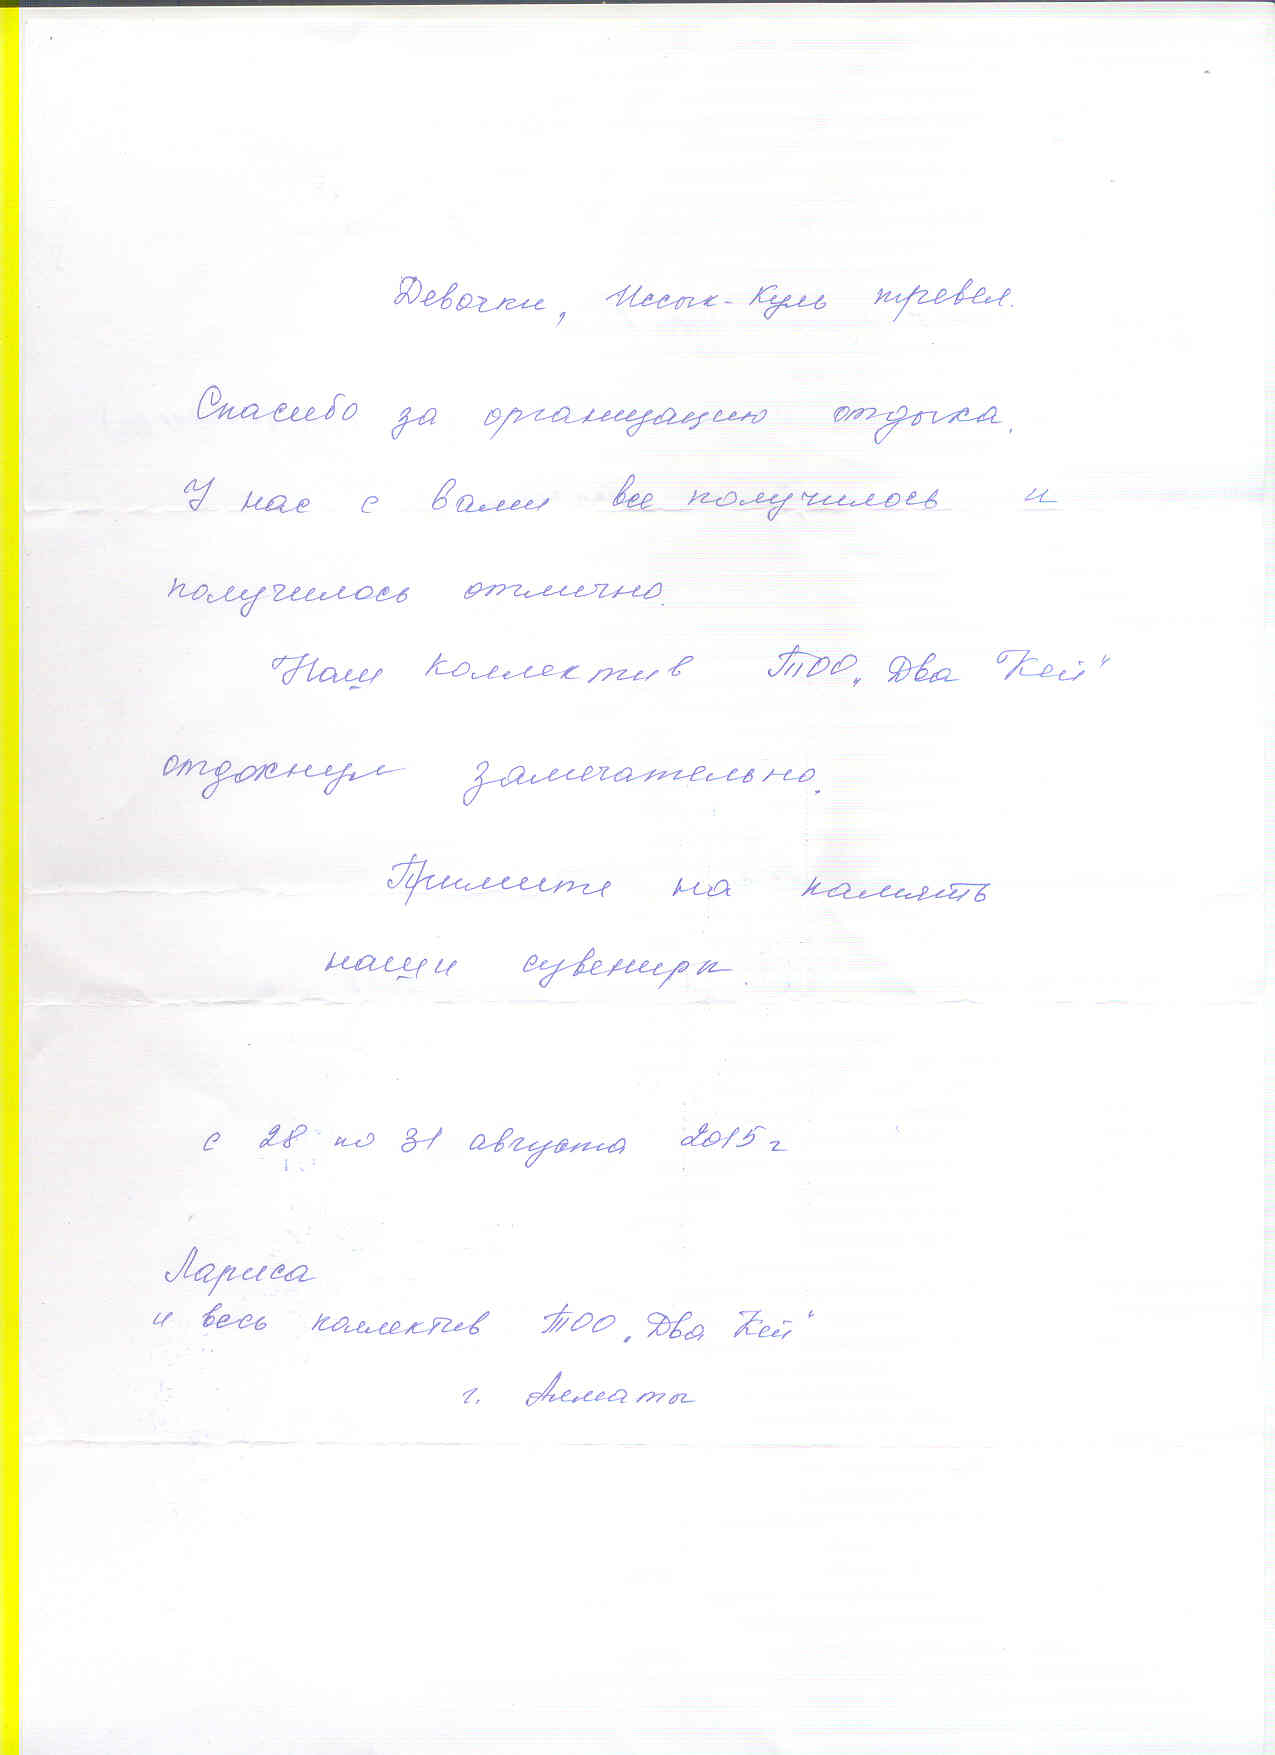 Девочки, Иссык-Куль тревел.
Спасибо за организацию отдыха.
У нас с вами все получилось и
получилось отлично.
Наш коллектив ТОО „Два Кей"
отдохнул замечательно.
Примите на память
наши сувениры.
с 28 по 31 августа 2015 г
Лариса
и весь коллектив ТОО „Два Кей"
г. Алматы